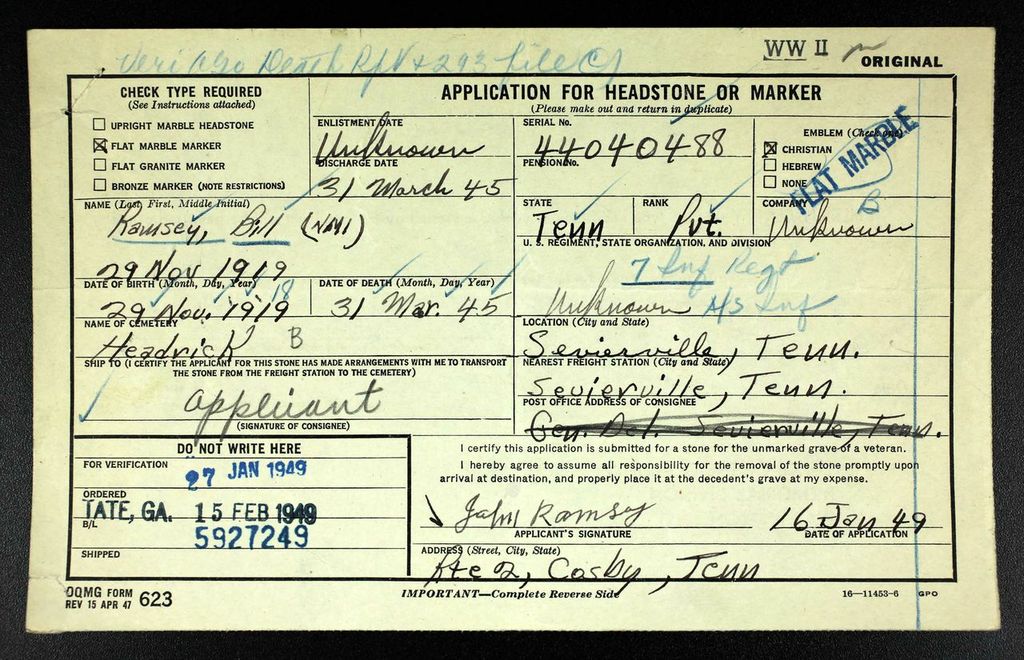 Death Rpt + 293 file
WW II
ORIGINAL
CHECK TYPE REQUIRED
(See Instructions attached)
UPRIGHT MARBLE HEADSTONE
FLAT MARBLE MARKER
FLAT GRANITE MARKER
BRONZE MARKER (NOTE RESTRICTIONS)
APPLICATION FOR HEADSTONE OR MARKER
(Please make out and return in duplicate)
ENLISTMENT DATE
Unknown
DISCHARGE DATE
31 March 45
SERIAL No.
44040488
PENSION No.
EMBLEM (Check one)
CHRISTIAN
HEBREW
NONE
FLAT MARBLE
NAME (Last, First, Middle Initial)
Ramsey, Bill (NMI)
29 Nov 1919
STATE
Tenn
RANK
Pvt.
COMPANY
B
Unknown
U. S. REGIMENT, STATE ORGANIZATION, AND DIVISION
7 Inf Regt
Unknown
Inf
DATE OF BIRTH (Month, Day, Year)
18
29 Nov. 1919
DATE OF DEATH (Month, Day, Year)
31 Mar. 45
NAME OF CEMETERY
Headrick B
LOCATION (City and State)
Sevierville, Tenn.
SHIP TO (I CERTIFY THE APPLICANT FOR THIS STONE HAS MADE ARRANGEMENTS WITH ME TO TRANSPORT
THE STONE FROM THE FREIGHT STATION TO THE CEMETERY)
applicant
(SIGNATURE OF CONSIGNEE)
NEAREST FREIGHT STATION (City and State)
Sevierville, Tenn.
POST OFFICE ADDRESS OF CONSIGNEE
Gen. Del. Sevierville, Tenn.
DO NOT WRITE HERE
FOR VERIFICATION
27 JAN 1949
ORDERED
TATE, GA. 15 FEB 1949
B/L
5927249
SHIPPED
I certify this application is submitted for a stone for the unmarked grave of a veteran.
I hereby agree to assume all responsibility for the removal of the stone promptly upon
arrival at destination, and properly place it at the decedent's grave at my expense.
John Ramsy
APPLICANT'S SIGNATURE
16 Jan 49
DATE OF APPLICATION
ADDRESS (Street, City, State)
Rte 2, Cosby, Tenn
OQMG FORM
REV 15 APR 47 623
IMPORTANT—Complete Reverse Side
16—11453-6 GPO